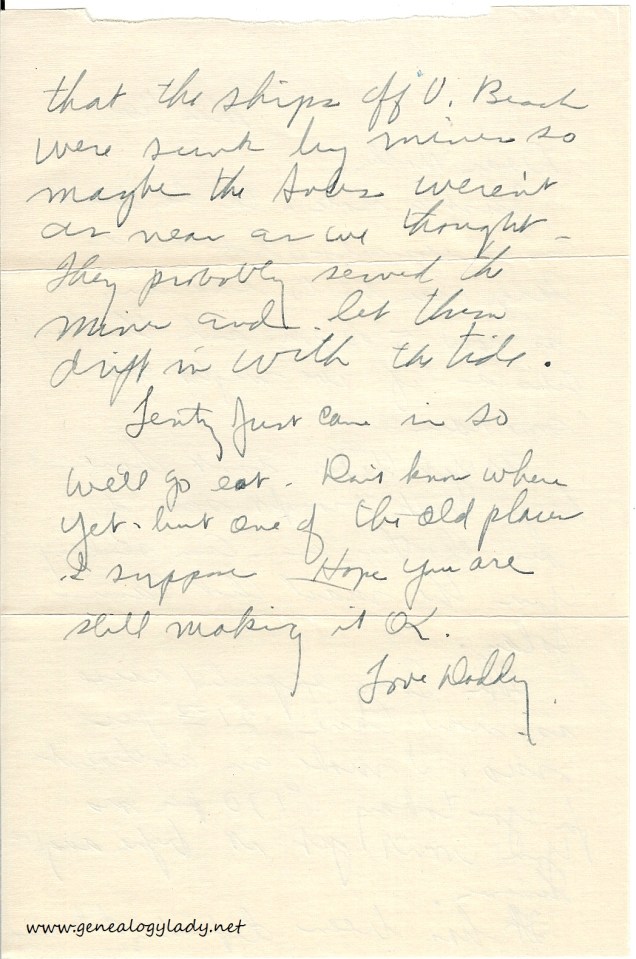 that the ships off V. Beach
were sunk by mines so
maybe the subs weren't
as near as we thought –
They probably the
mines and let them
drift in with the tide.
just came in so
we'll go eat. Don't know where
yet - but one of the old places
I suppose Hope you are
still making it OK.
Love Daddy.
www.genealogylady.net